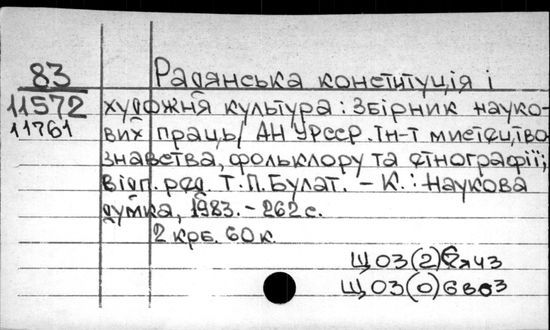 83
11572
11761
Радянська конституція і
художня культура: Збірник науко-
вих праць / АН УРССР. Ін-т мистецтво-
знавства, фольклору та етнографії;
Відп. ред. Т.П.Булат. – К.: Наукова
думка, 1983. – 262 с.
2 крб. 60 к.
Щ03(2)
Щ03(0)6